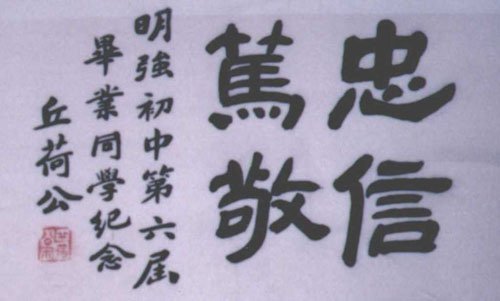 忠信
篤敬
明強初中第六屆
畢業同學紀念
丘荷公